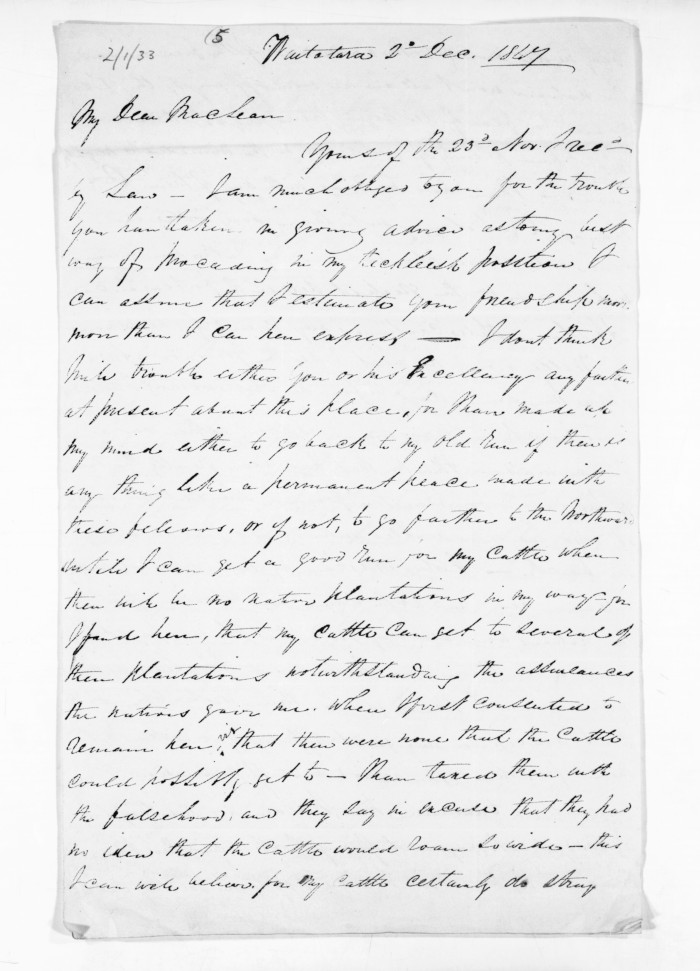 2/1/33
(5
Waitotara 2d Dec. 1847
My Dear MacLean
Yours of the 23d Nov. I recd
by Law – I am much obliged to you for the trouble
you have taken in giving advice as to my best
way of proceeding in my ticklish position I
can assure that I estimate your friendship
more than I can here express — I dont think
I will trouble either you or his Excellency any farther
at present about this place, for I have made up
my mind either to go back to my old run if there is
any thing like a permanent peace made with
these fellows, or if not, to go farther to the Northward
untill I can get a good run for my Cattle when
there will be no native plantations in my way for
I find here, that my cattle can get to several of
their plantations notwithstanding the assurances
the natives gave me when I first consented to
remain here, viz that there were none that the Cattle
could possibly get to – I have taxed them with
the falsehood, and they say in excuse that they had
no idea that the Cattle would roam so wide – this
I can well believe for my cattle certainly do stray